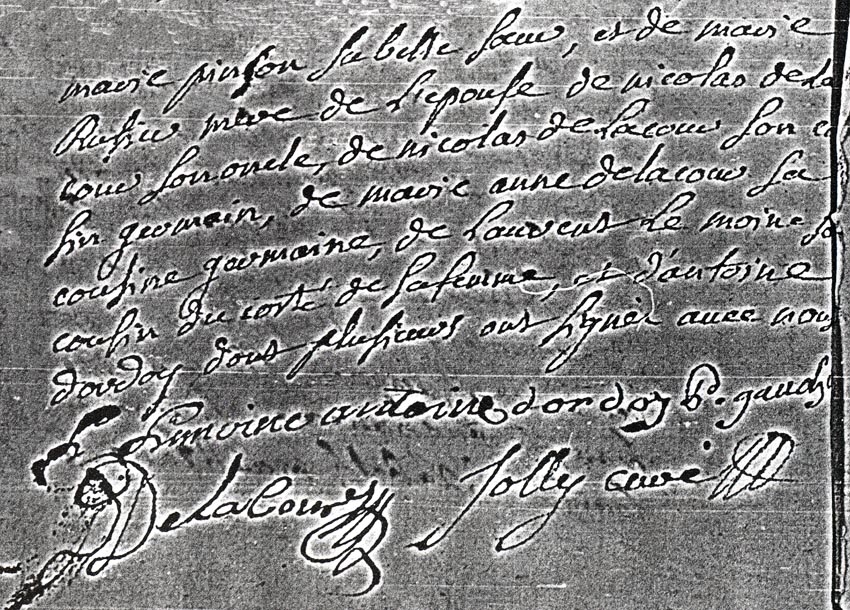 marie pinson sa belle sœur, et de marie
mere de l'epouse de nicolas de la
cour son oncle, de nicolas de lacour son cou
sin germain, de marie anne delacour sa
cousine germaine, de laurens le moine sa
cousin du costé de sa femme, et d'antoine
dordoy dont plusieurs ont signèz avec nous
Lemoine antoine dordoy P. gauch
De La Cour Jolly curé